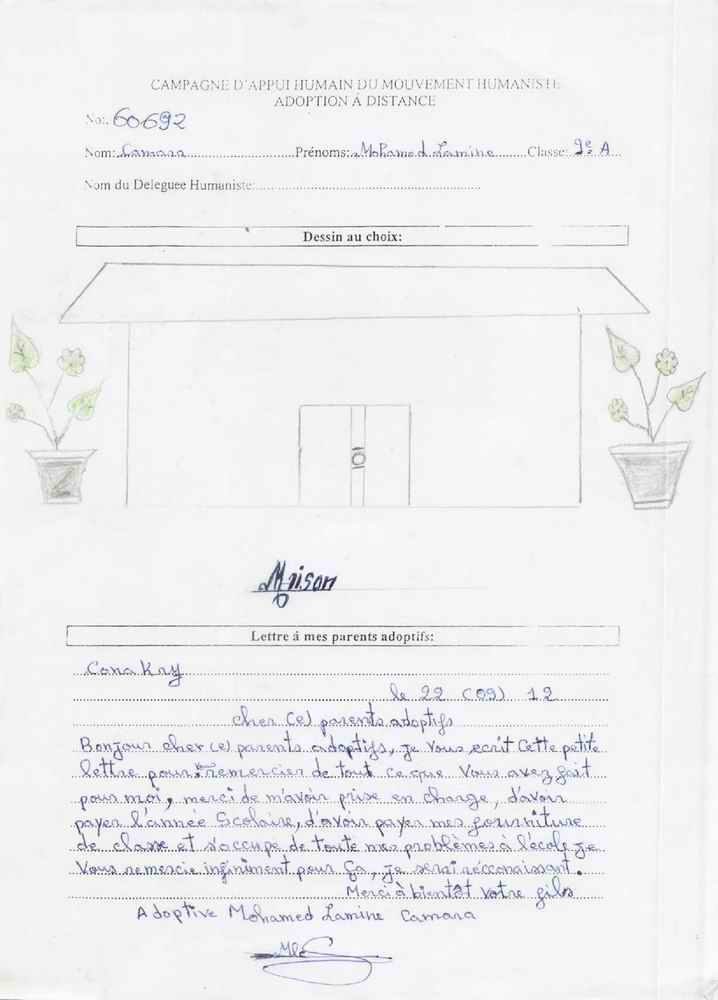 CAMPAGNE D'APPUI HUMAIN DU MOUVEMENT HUMANISTE
ADOPTION Á DISTANCE
No:. 60692
Nom: Camara Prénoms: Mohamed Lamine Classe: 9e A
Nom du Deleguee Humaniste:
Dessin au choix:
Maison
Lettre á mes parents adoptifs:
Conakry
le 22 (09) 12
cher (e) parents adoptifs
Bonjour cher (e) parents adoptifs, je vous ecrit cette petite
lettre pour vous remercier de tout ce que vous avez fait
pour moi, merci de m'avoir prise en charge, d'avoir
payer l'année Scolaire, d'avoir payer mes fourniture
de classe et s'occupe de toute mes problèmes à l'école je
Vous remercie infiniment pour ça, je serai réconnaissant.
Merci à bientôt votre fils
Adoptive Mohamed Lamine Camara